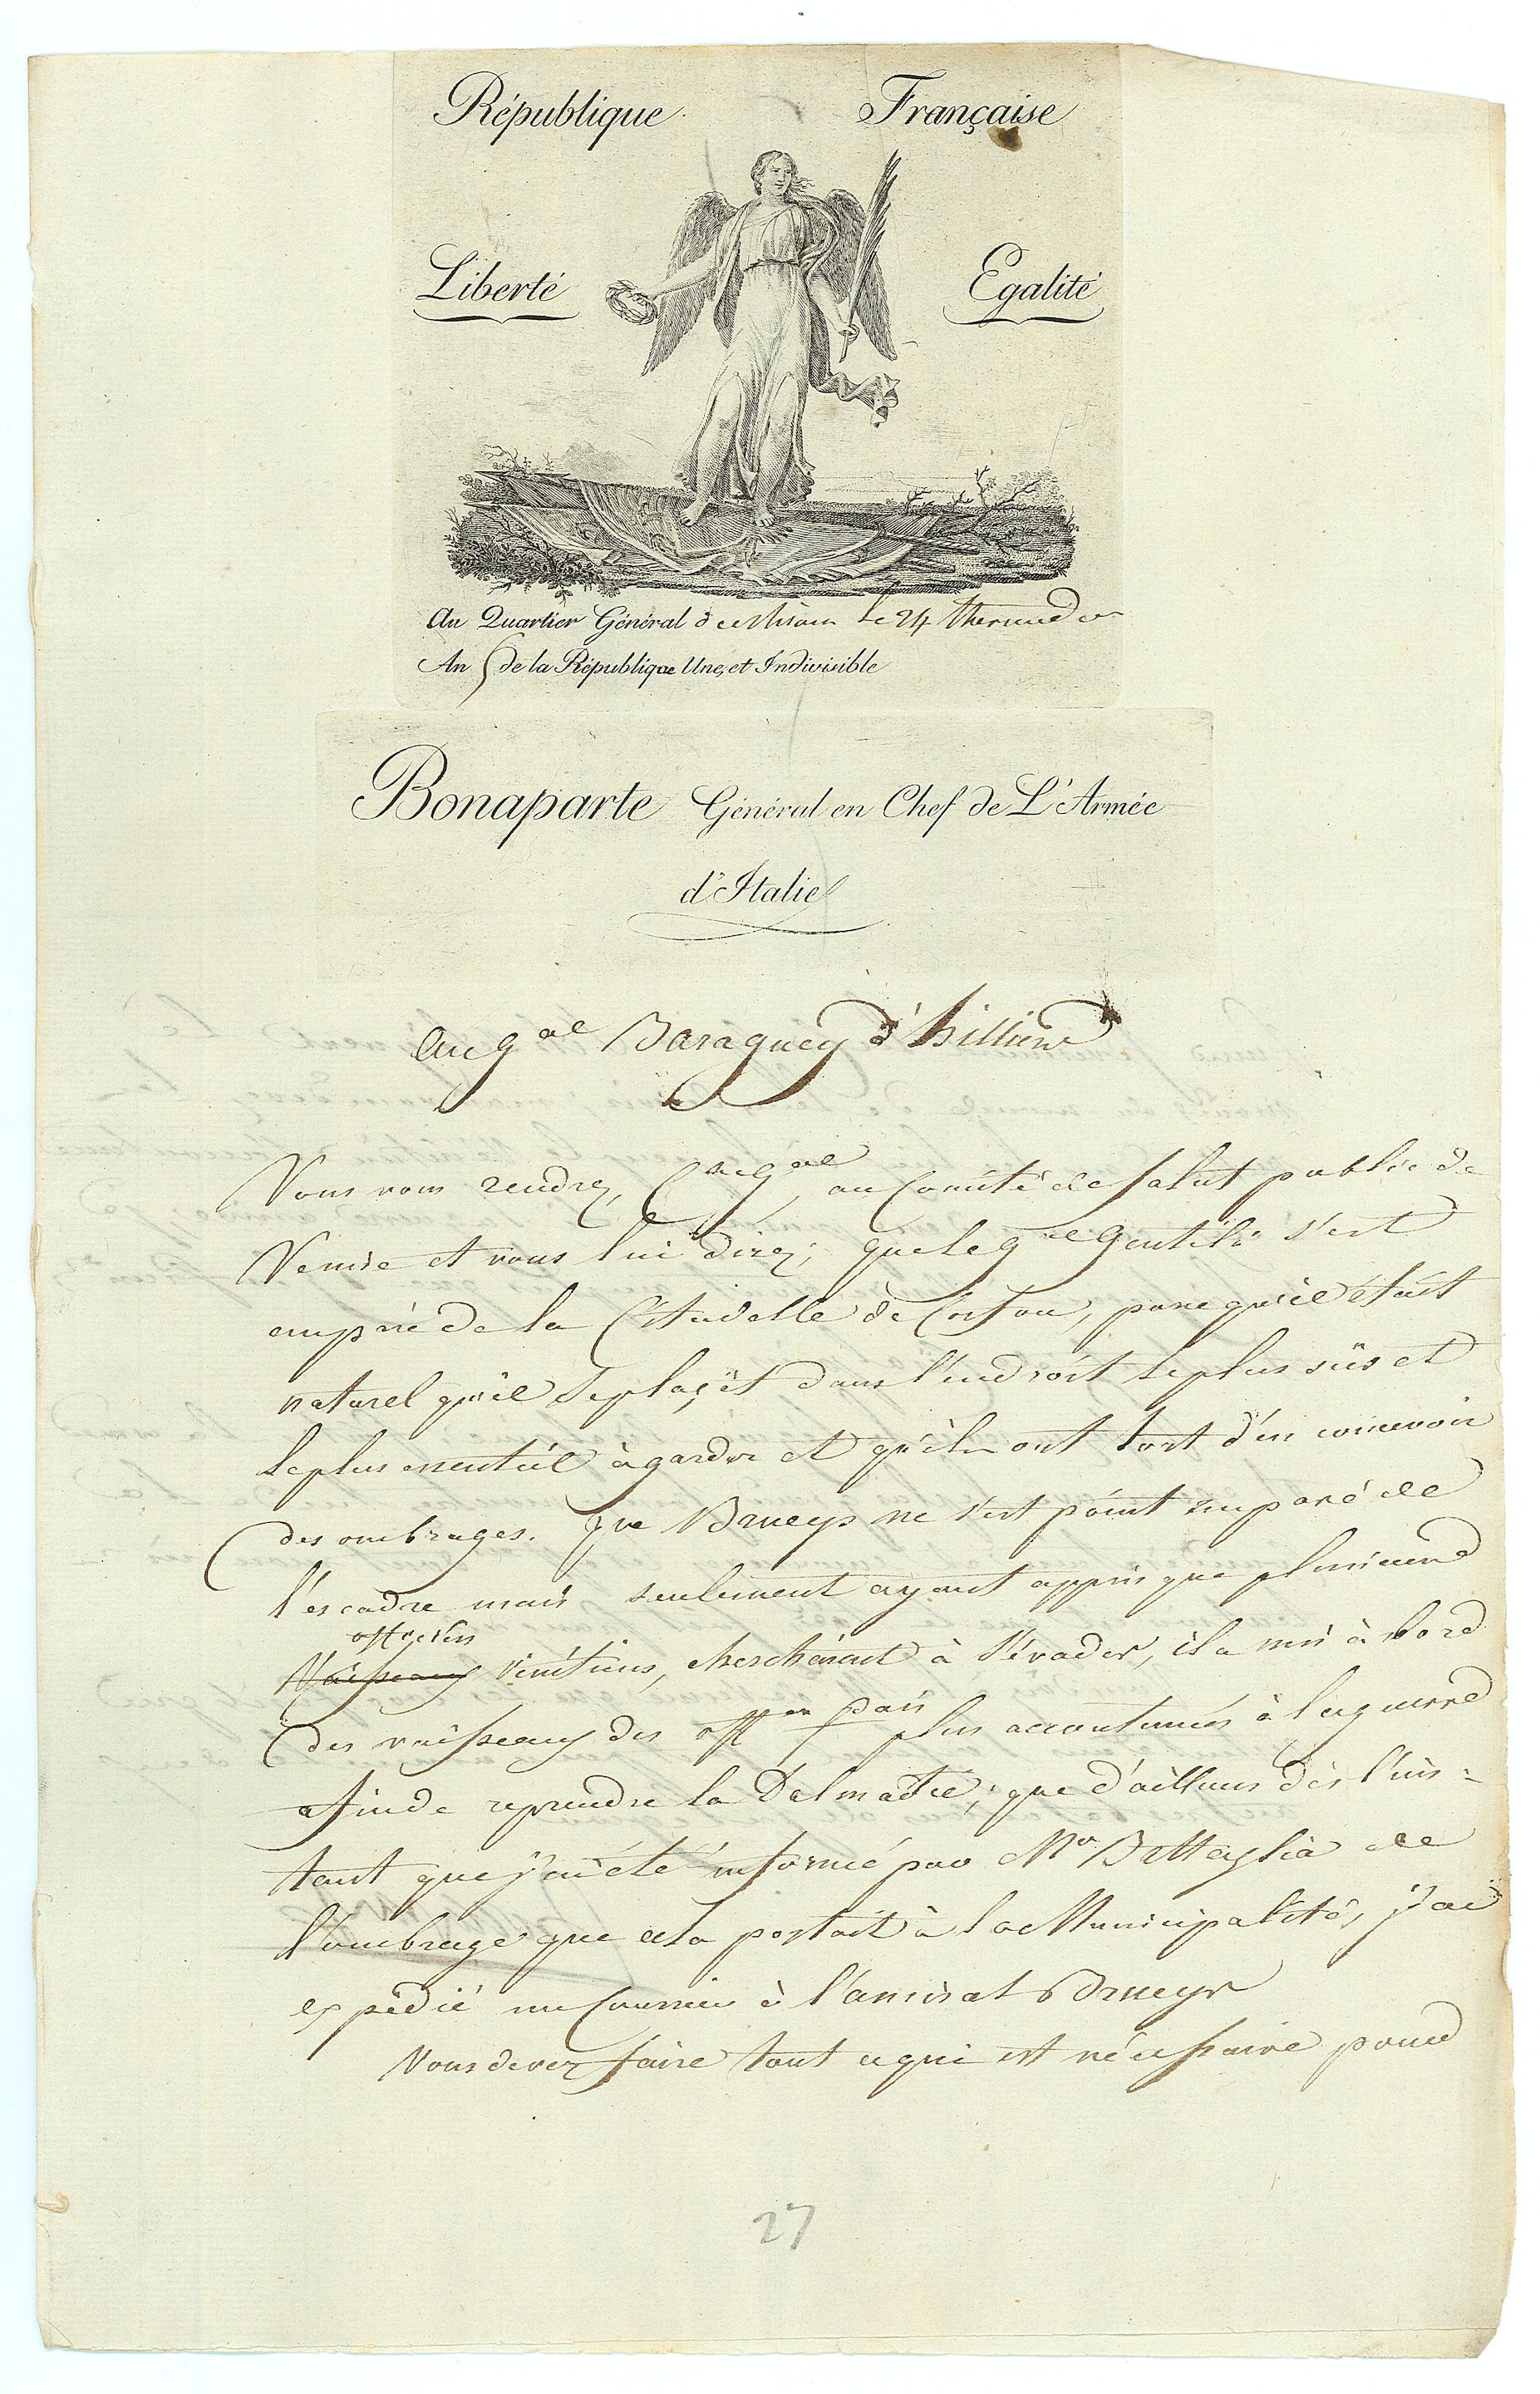 République Française
Liberté Egalité
Au Quartier Général de Milan le 24 thermidor
An 5 de la République Une, et Indivisible
Bonaparte Général en Chef de L'Armée
d'Italie
Au gal Baraguey d'hilliers
Vous vous rendrez, Cen gal, au Comité de salut public de
Venise et vous lui direz, que le gal Gentili s'est
emparé de la Citadelle de Corfou, parcequ'il était
naturel qu'il se plaçât dans l'endroit le plus sûr et
le plus essentiel à garder et qu'ils ont tort d'en concevoir
des ombrages. que Brueys ne s'est point emparé de
l'escadre mais seulement ayant appris que plusieurs
officiers
Vaisseaux vénitiens, cherchaient à s'évader, il a mis à bord
des vaisseaux des offers français plus accoutumés à la guerre
afin de reprendre la Dalmatie; que d'ailleurs dès l'ins=
tant que j'ai été informé par Mr Battaglia de
l'ombrage que cela portait à la Municipalité, j'ai
expédié un Courrier à l'amiral Brueys
Vous devez faire tout ce qui est nécessaire pour
27